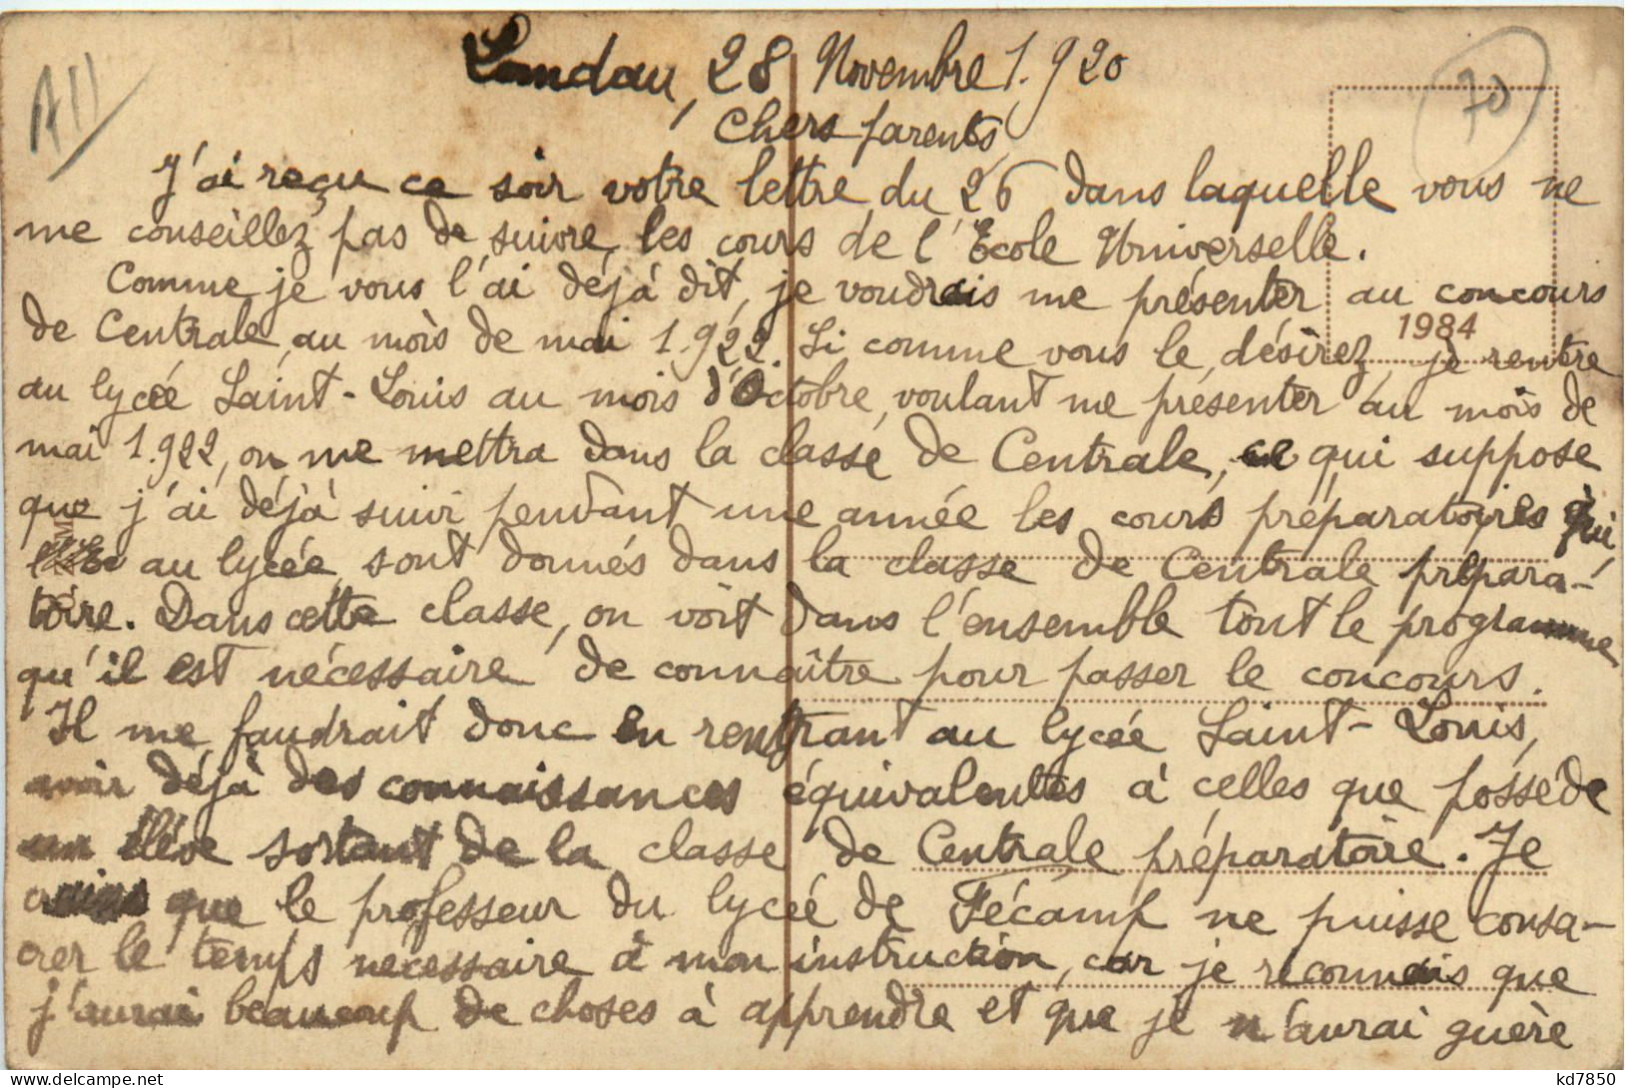 A11
70
Landau, 28 Novembre 1.920
Chers parents
J'ai reçu ce soir votre lettre du 26 dans laquelle vous ne
me conseillez pas de suivre les cours de l'Ecole Universelle.
Comme je vous l'ai déjà dit, je voudrais me présenter au concours
de Centrale, au mois de mai 1.922. Si comme vous le désirez, je rentre
1984
au lycée Saint-Louis au mois d'Octobre, voulant me présenter au mois de
mai 1.922, on me mettra dans la classe de Centrale, ce qui suppose
que j'ai déjà suivi pendant une année les cours préparatoires qui
au lycée sont donnés dans la classe de Centrale prépara-
toire. Dans cette classe, on voit dans l'ensemble tout le programme
qu'il est nécessaire de connaître pour passer le concours.
Il me faudrait donc en rentrant au lycée Saint-Louis,
avoir déjà des connaissances équivalentes à celles que possède
un élève sortant de la classe de Centrale préparatoire. Je
crains que le professeur du lycée de Fécamp ne puisse consa-
crer le temps nécessaire à mon instruction, car je reconnais que
j'aurai beaucoup de choses à apprendre et que je n'aurai guère
kd7850